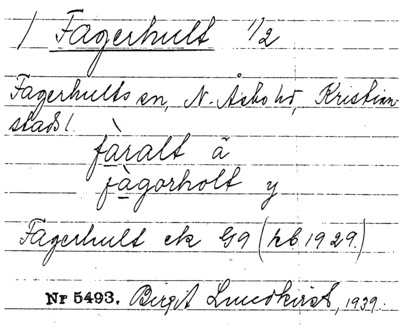 / Fagerhult 1/2
Fagerhults sn, N. Åsbo hd, Kristian-
stads l.
fàralt ä
fàgorholt y
Fagerhult ek G9 (hb 1929)
Nr 5493. Birgit Lundkvist, 1939.